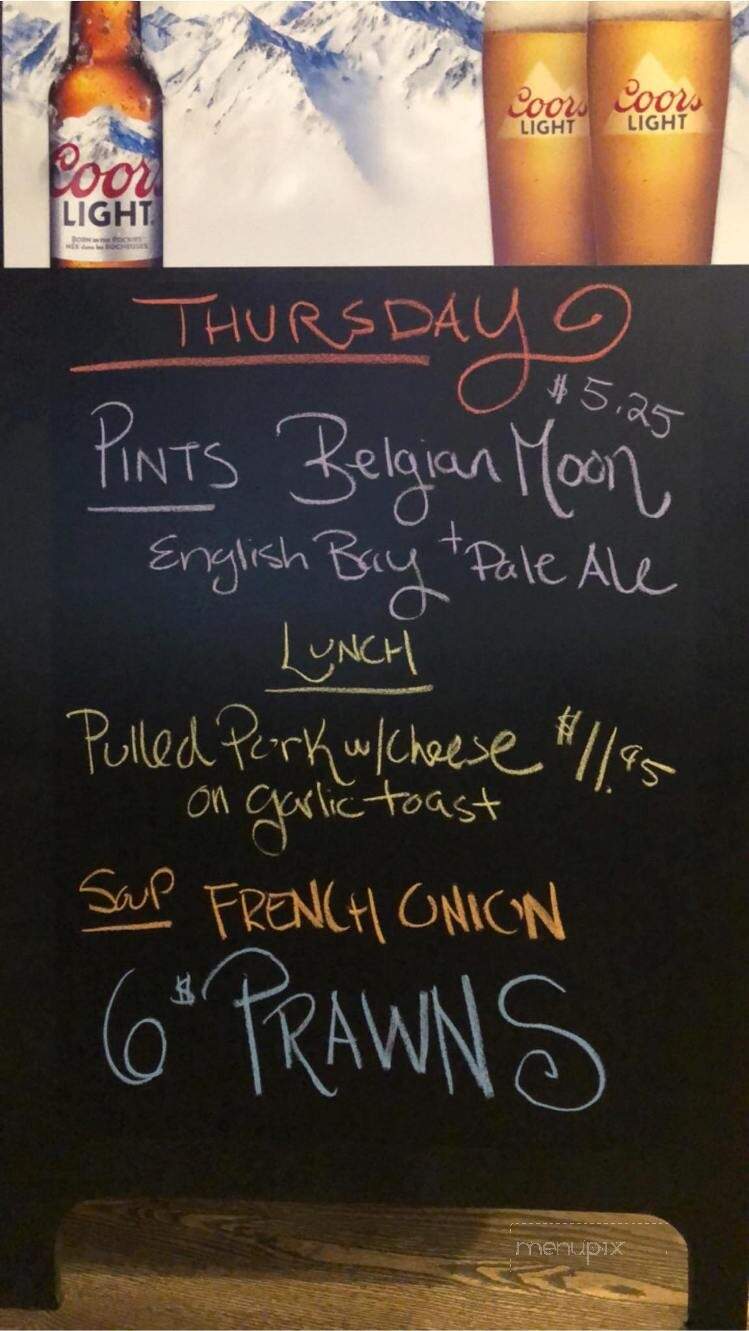 Coors
LIGHT
BORN IN THE ROCKIES
NÉE dans les ROCHEUSES
Coors
LIGHT
Coors
LIGHT
THURSDAY
$5.25
PINTS Belgian Moon
English Bay + Pale Ale
LUNCH
Pulled Pork w/cheese $11.95
on garlic toast
Soup FRENCH ONION
6$ PRAWNS
menupix